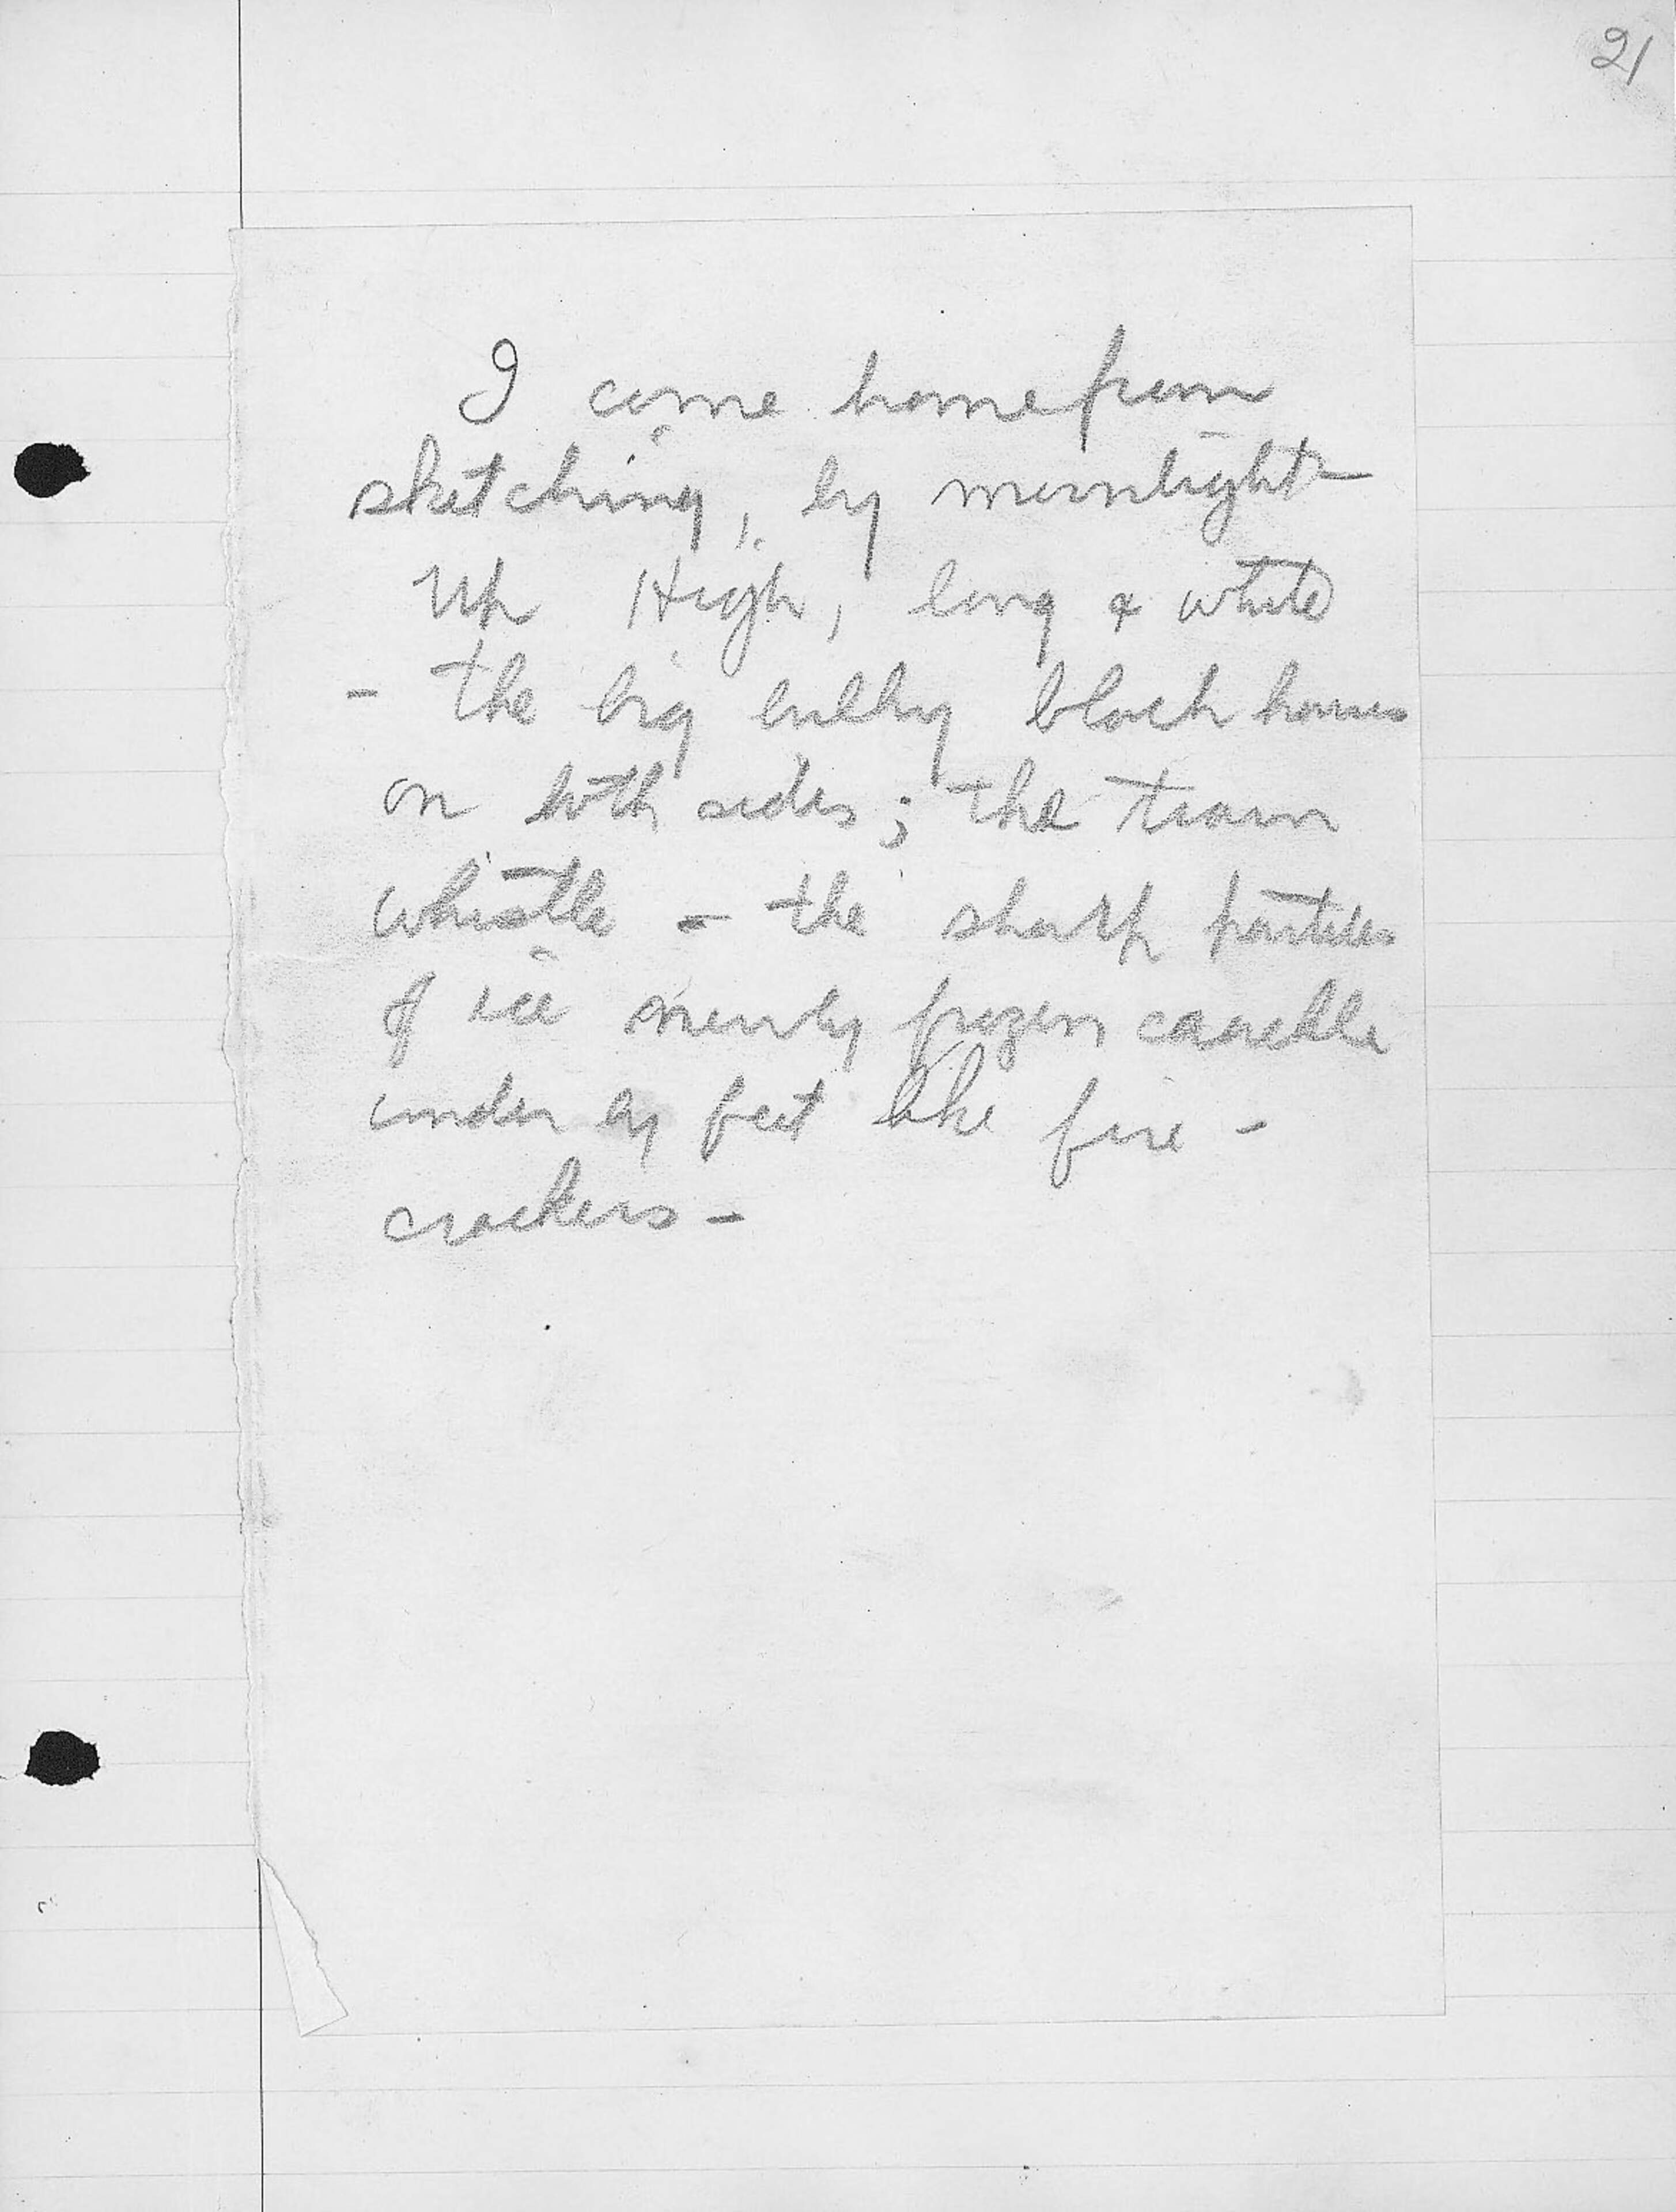 21
I come home from
sketching, by moonlight –
Up High, long & white
– the big bulky black houses
on both sides; the train
whistle – the sharp particles
of ice newly frozen crackle
under my feet like fire –
crackers –